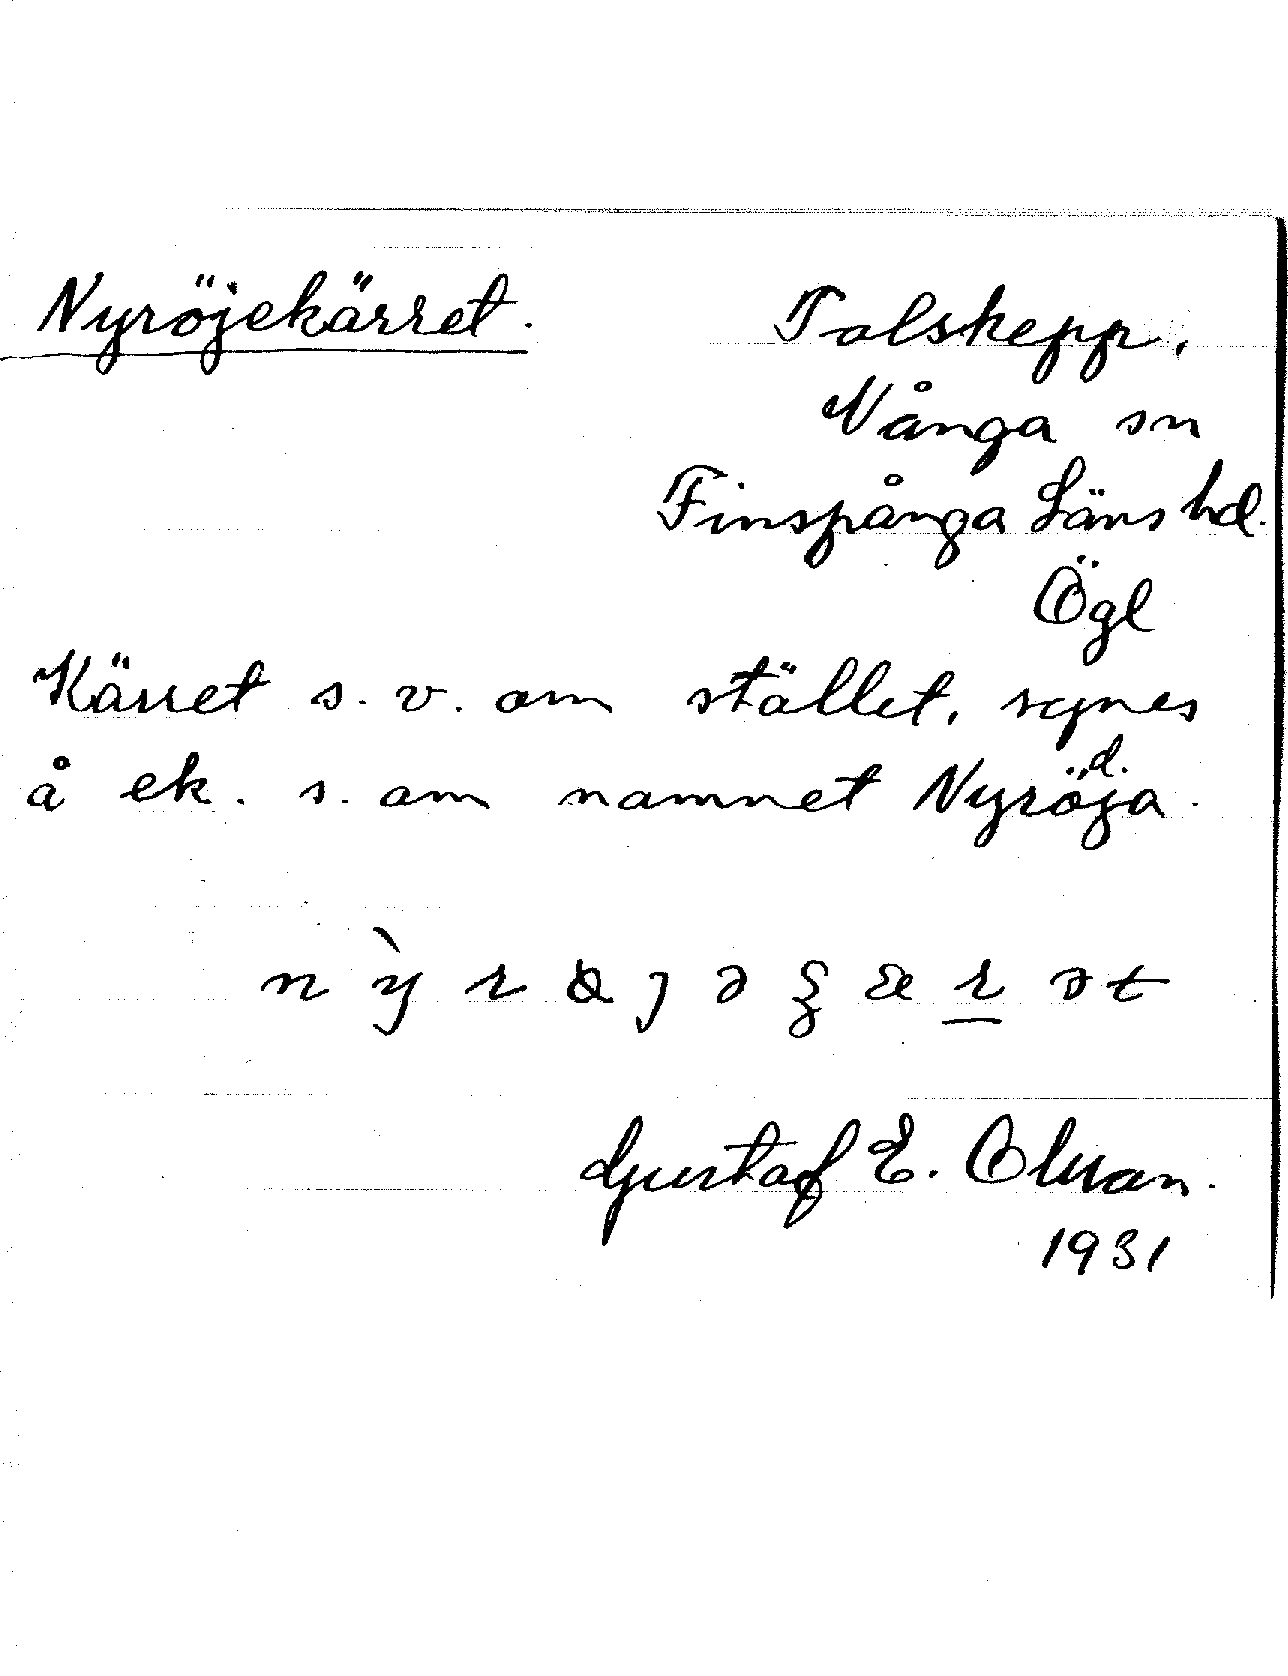 Nyröjekärret.
Tolskepp,
Vånga sn
Finspånga Läns hd.
Ögl
Kärret s. v. om stället, synes
å ek. s. om namnet Nyröja.
d.
Gustaf E. Olsson.
1931